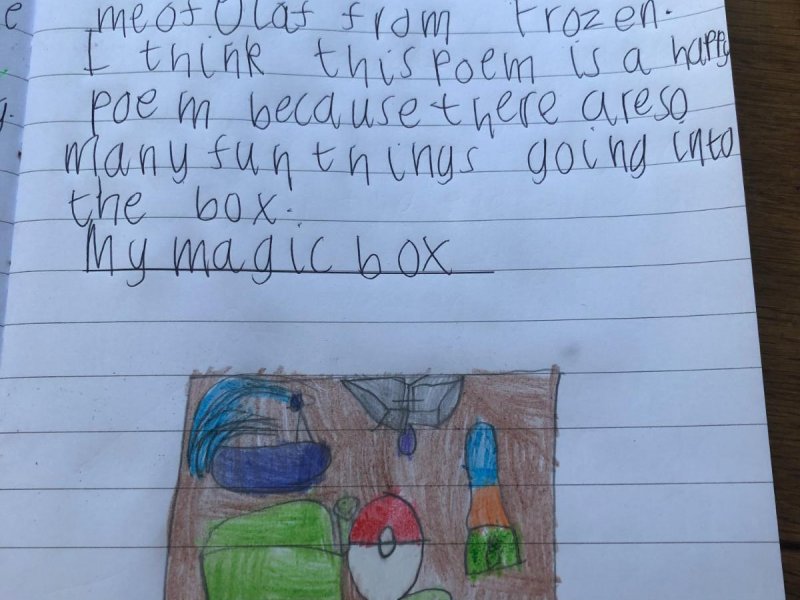 me of Olaf from Frozen.
I think this poem is a happy
poem because there are so
many fun things going into
the box.
My magic box